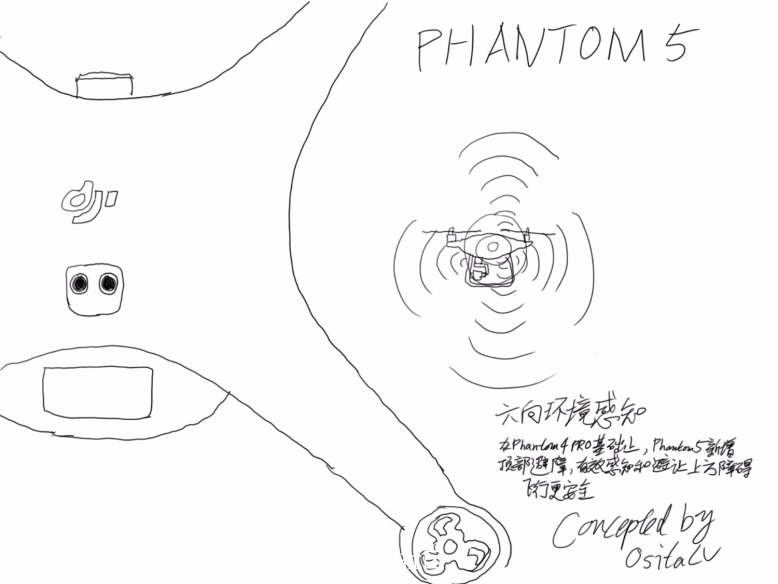 PHANTOM 5
dji
六向环境感知
在Phantom4 PRO基础上，Phantom5新增
顶部避障，有效感知和避让上方障碍
飞行更安全
Concepted by
OsitaLV